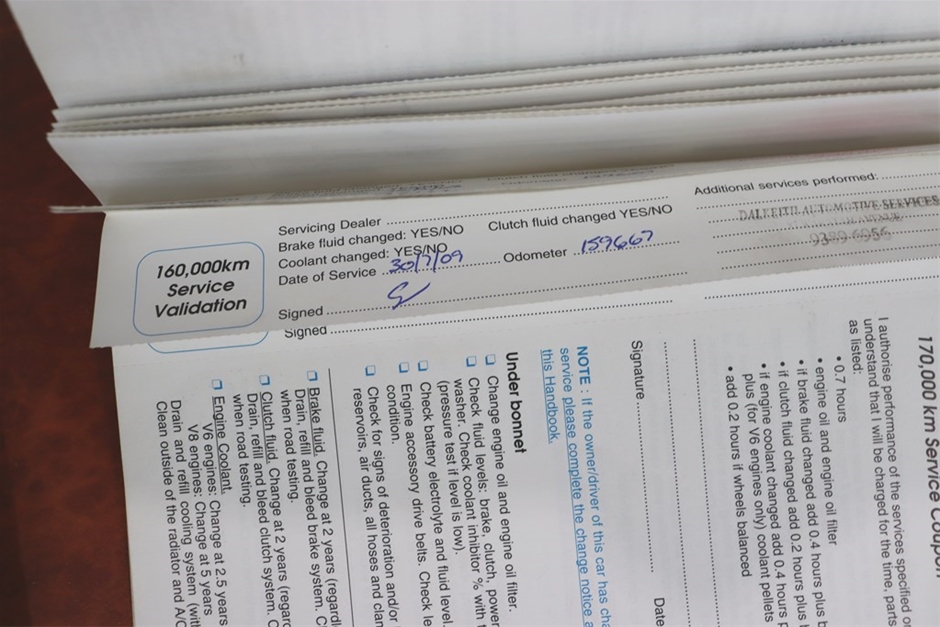 160,000km
Service
Validation
Servicing Dealer
Brake fluid changed: YES/NO Clutch fluid changed YES/NO
Coolant changed: YES/NO
Date of Service 30/7/09 Odometer 159667
Signed
Signed
Additional services performed:
DALKEITH AUTOMOTIVE SERVICES
AVENUE
9389 6956
170,000 km Service Coupon
I authorise performance of the services specified
understand that I will be charged for the time, parts
as listed:
• 0.7 hours
• engine oil and engine oil filter
• if brake fluid changed add 0.4 hours plus
• if clutch fluid changed add 0.2 hours plus
• if engine coolant changed add 0.4 hours
plus (for V6 engines only) coolant pellets
• add 0.2 hours if wheels balanced
Signature Date
NOTE : If the owner/driver of this car has
service please complete the change notice
this Handbook.
Under bonnet
❑ Change engine oil and engine oil filter.
❑ Check fluid levels: brake, clutch, power
washer. Check coolant inhibitor % with
(pressure test if level is low).
❑ Check battery electrolyte and fluid level.
❑ Engine accessory drive belts. Check
condition.
❑ Check for signs of deterioration and/or
reservoirs, air ducts, all hoses and
❑ Brake fluid. Change at 2 years
Drain, refill and bleed brake system.
when road testing.
❑ Clutch fluid. Change at 2 years
Drain, refill and bleed clutch system.
when road testing.
❑ Engine Coolant.
V6 engines: Change at 2.5 years
V8 engines: Change at 5 years
Drain and refill cooling system
Clean outside of the radiator and